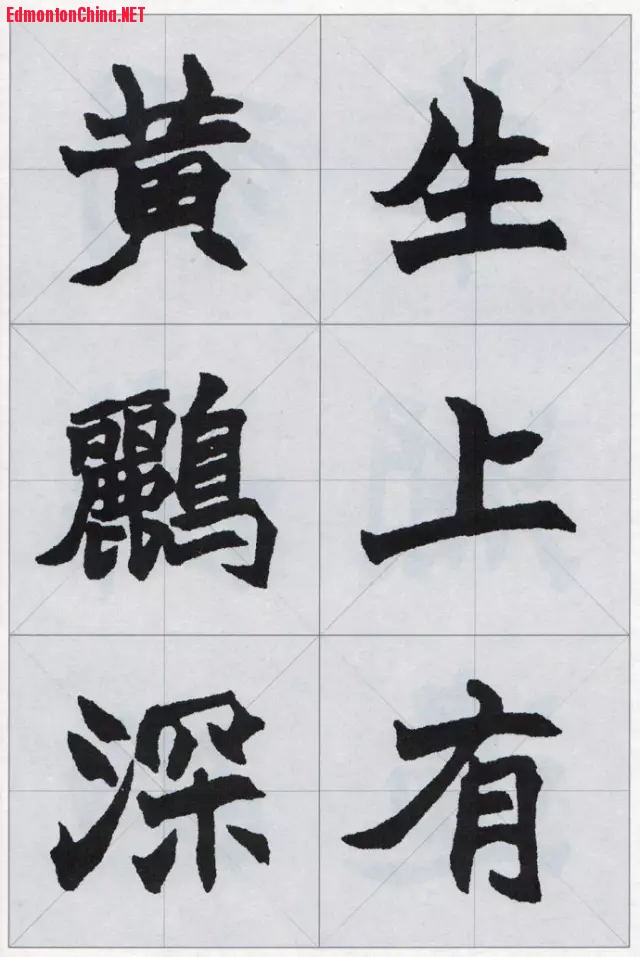 EdmontonChina.NET
生上有
黄鸝深